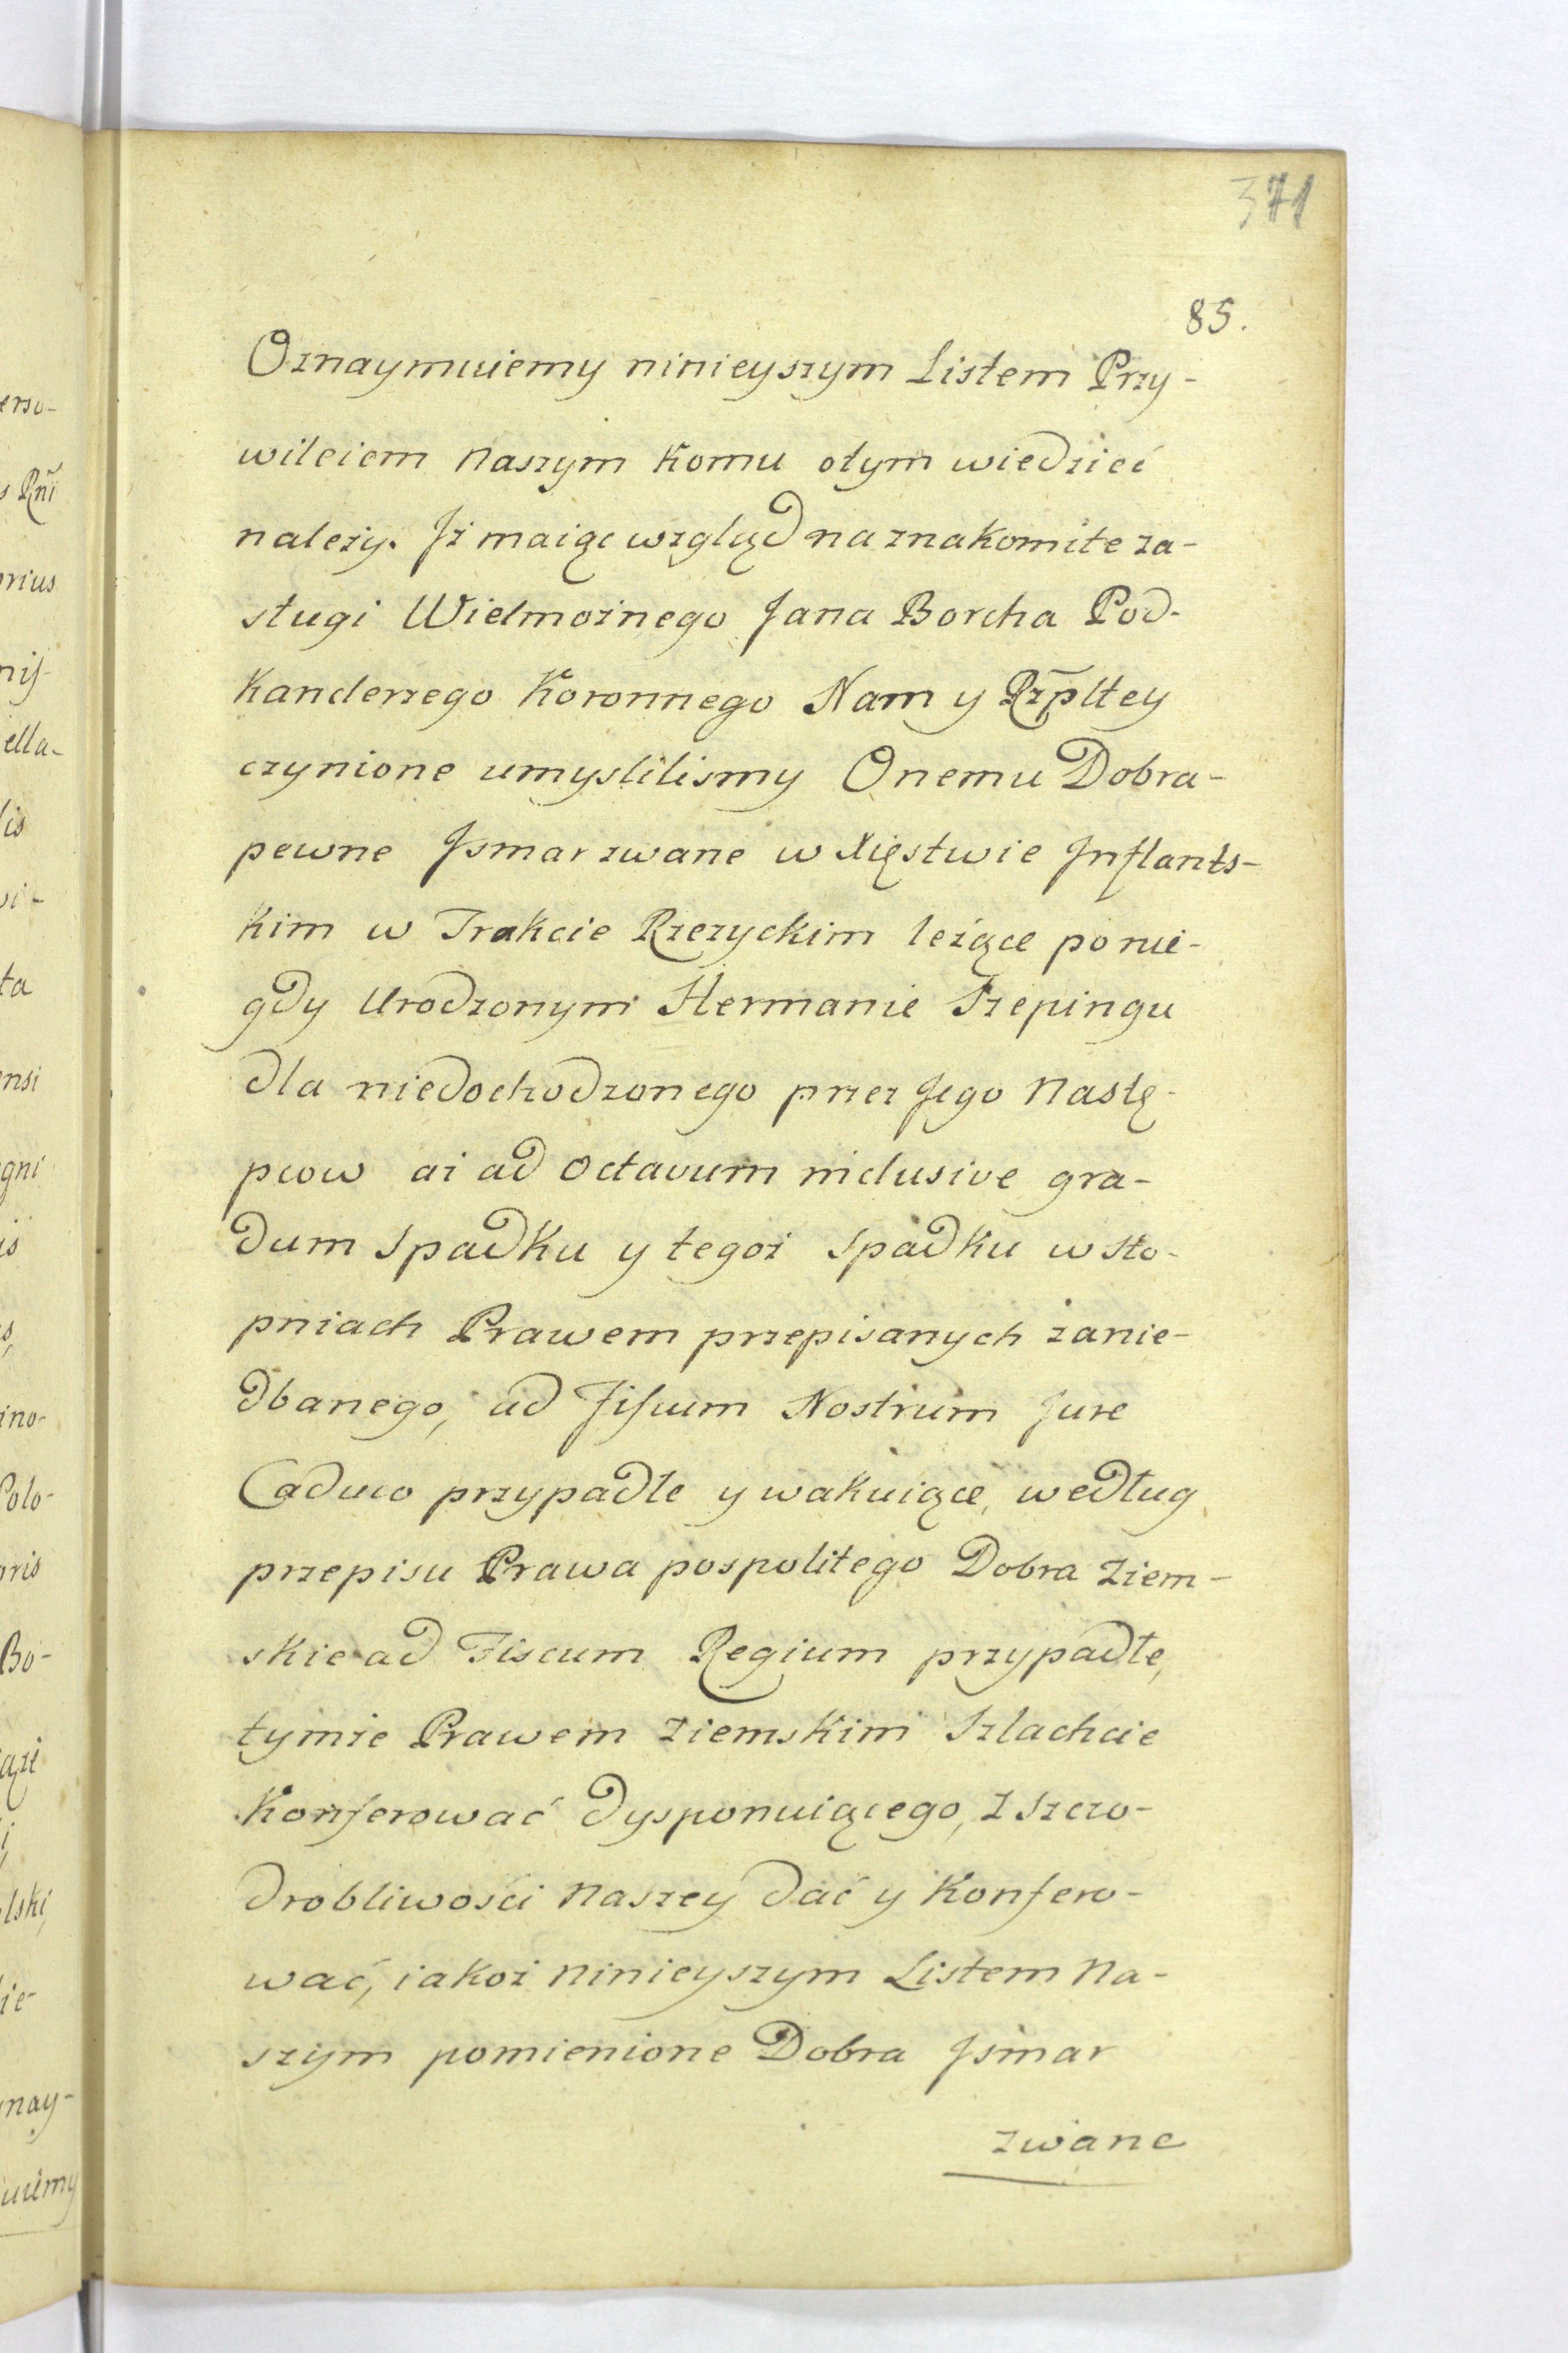 371
85.
Oznaymuiemy ninieyszym Listem Przy-
wileiem Naszym Komu otym wiedzieć
należy. Jż maiąc wzgląd na znakomite za-
sługi Wielmożnego Jana Borcha Pod-
kanclerzego Koronnego Nam y Rzpltey
czynione umyslilismy Onemu Dobra-
pewne Jsmar zwane w Xięstwie Jnflants-
kim w Trakcie Rzezyckim leżące po nie-
gdy Urodzonym Hermanie Szepingu
dla niedochodzonego przez Jego Nastę-
pcow aż ad Octavum inclusive gra-
dum Spadku y tegoż Spadku w sto-
pniach Prawem przepisanych zanie-
dbanego, ad Fiscum Nostrum Jure
Caduco przypadłe y wakuiące, według
przepisu Prawa pospolitego Dobra Ziem-
skie ad Fiscum Regium przypadłe,
tymże Prawem Ziemskim Szlachcie
Konferować dysponuiącego, z szczo-
drobliwości Naszey dać y Konfero-
wać, iakoż Ninieyszym Listem Na-
szym pomienione Dobra Jsmar
zwane
erso-
s Rñi
orius
nis-
ella-
lis
vi-
ta
ensi
gni
is
s,
ino-
Polo-
oris
Bo-
ązi
lski,
ie-
ynay-
uiemy